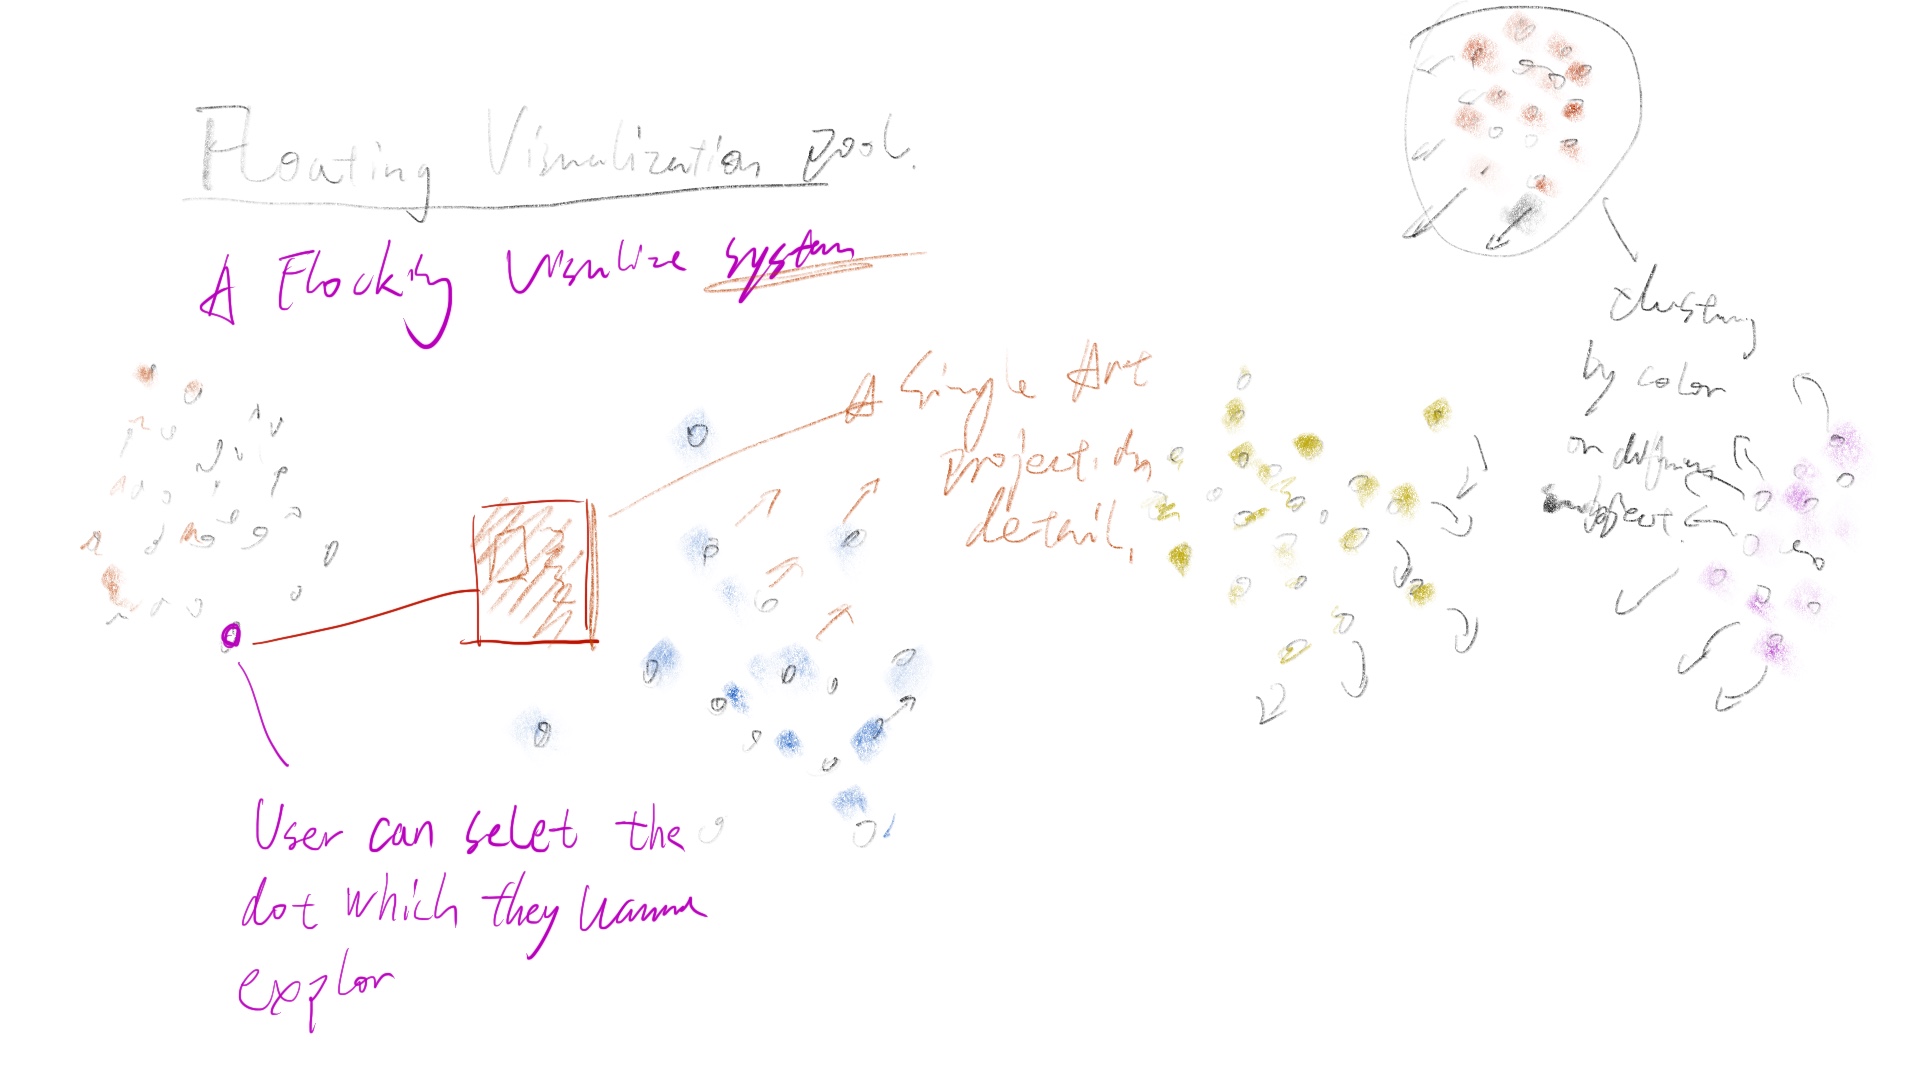 Floating Visualization pool.
A Flocking Visulize system
A Single Art
project in
detail.
clustering
by color
on different
subject.
User can selet the
dot which they wanna
explor